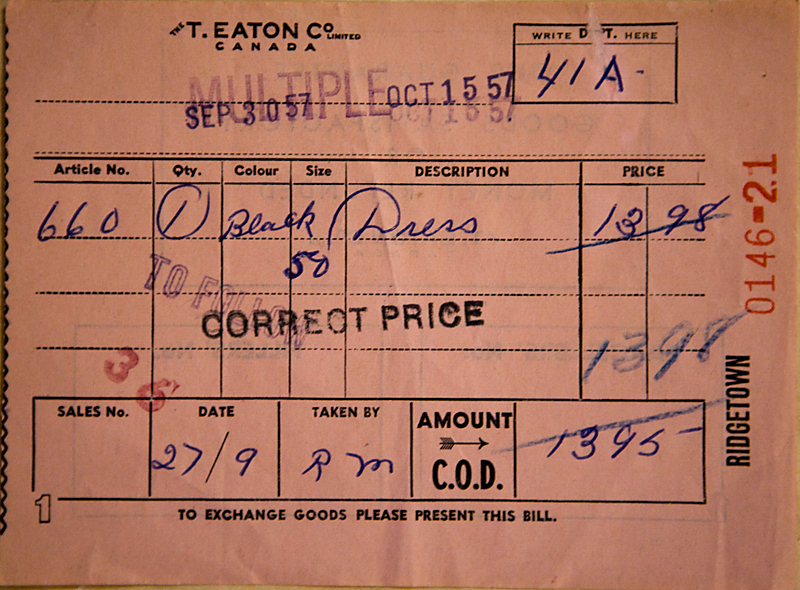 THE T. EATON CO LIMITED
CANADA
WRITE DEPT. HERE
41A-
MULTIPLE
SEP 30 57 OCT 15 57
Article No. Qty. Colour Size DESCRIPTION PRICE
660 1 Black Dress 13 98
50
TO FOLLOW
CORRECT PRICE
1398
36
0146-21
RIDGETOWN
SALES No. DATE TAKEN BY AMOUNT C.O.D.
27/9 R m 1395
1 TO EXCHANGE GOODS PLEASE PRESENT THIS BILL.